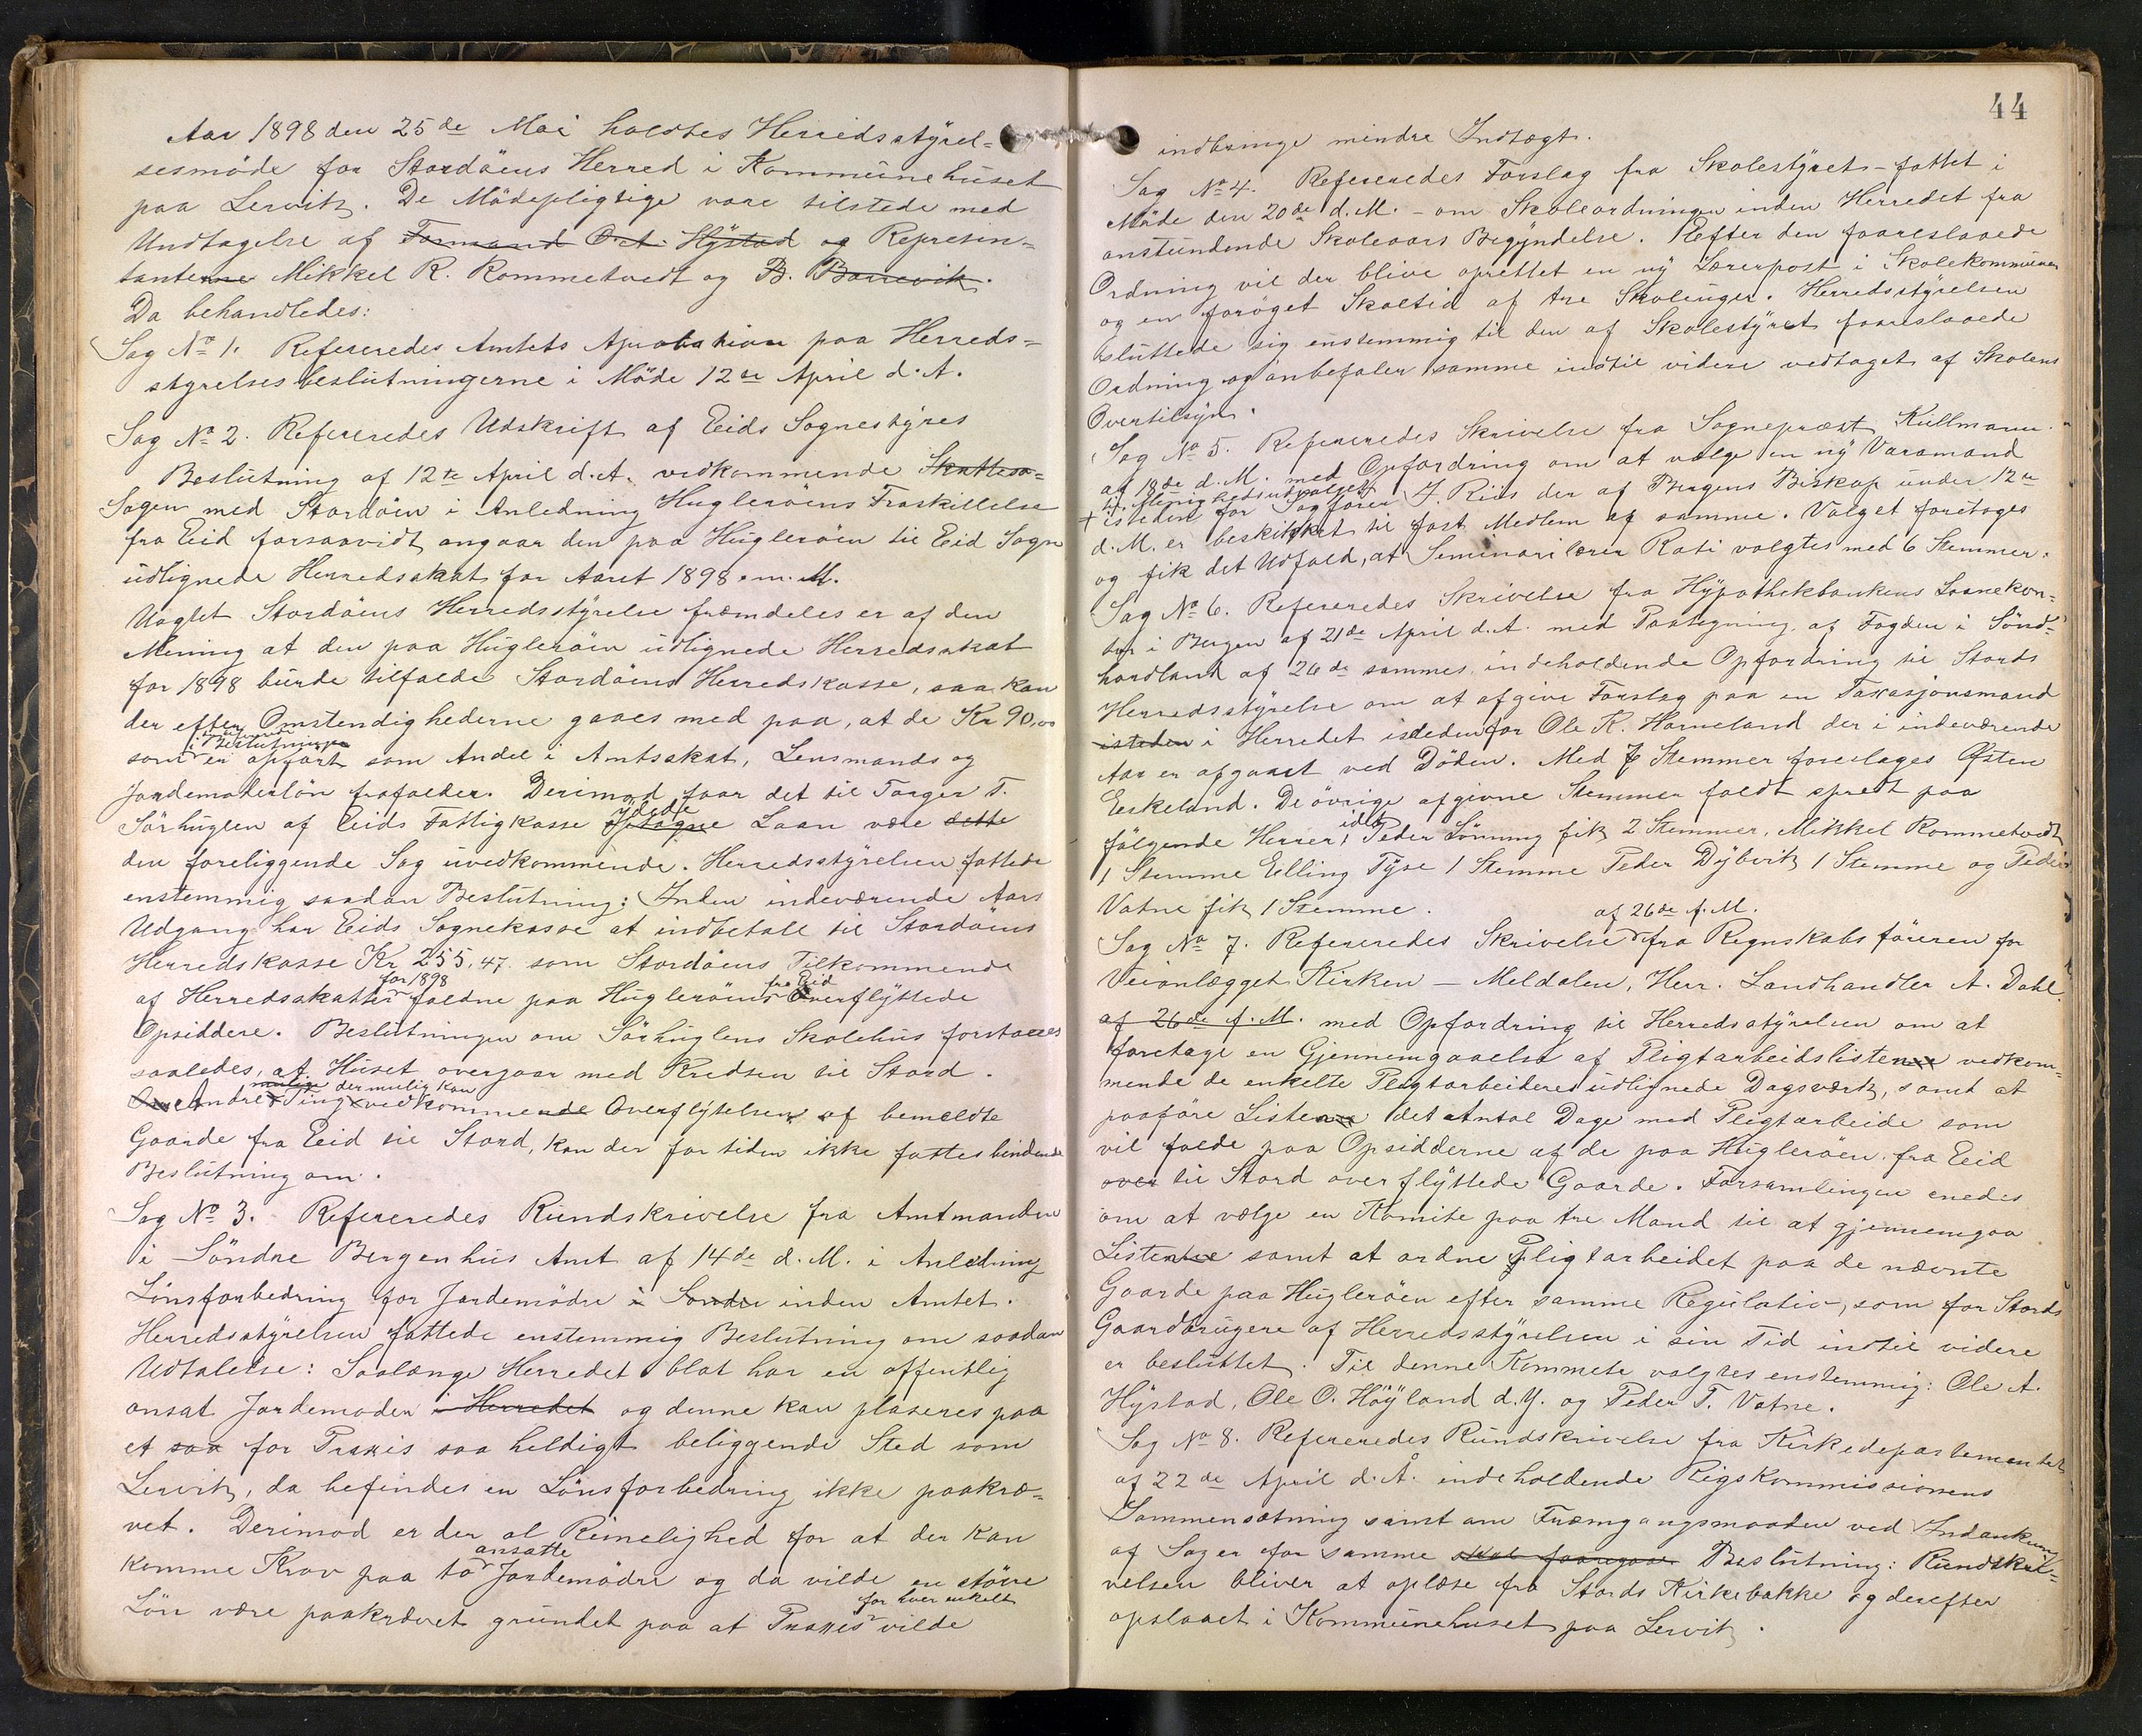 Aar 1898 den 25de Mai holdtes Herredsstyrel-
sesmöde for Stordöens Herred i Kommunehuset
paa Lervik. De Mödepligtige vare tilstede med
Undtagelse af Formand Oct. Hystad og Represen-
tanterne Mikkel R. Rommetvedt og B. Barrevik.
Da behandledes:
Sag No 1. Refereredes Amtets Aprobation paa Herreds-
styrelsesbeslutningerne i Möde 12te April d. A.
Sag No 2. Refereredes Udskrift af Eids Sognestyres
Beslutning af 12te April d.A. vedkommende Skattesa-
Sagen med Stordöen i Anledning Huglerøens Fraskillelse
fra Eid forsaavidt angaar den paa Huglerøen til Eid Sogn
udlignede Herredsskat for Aaret 1898 m. M.
Uagtet Stordöens Herredsstyrelse fremdeles er af den
Mening at den paa Huglerøen udlignede Herredsskat
for 1898 burde tilfalde Stordöens Herredskasse, saa kan
der efter Omstendighederne gaaes med paa, at de Kr 90,00
i Beslutningen
som er opført som Andel i Amtsskat, Lensmands og
Jordemoderlön frafalder. Derimod faar det til Torger T.
ydede
Sörhuglen af Eids Fattigkasse optagne Laan være dette
den foreliggende Sag uvedkommende. Herredsstyrelsen fattede
enstemmig saadan Beslutning: Inden indeværende Aars
Udgang har Eids Sognekasse at indbetale til Stordöens
Herredskasse Kr 255,47 som Stordöens Tilkommende
for 1898 fra Eid
af Herredsskatter faldne paa Huglerøens Overflyttede
Opsiddere. Beslutningen om Sörhuglens Skolehus forstaaes
saaledes, at Huset overgaar med Kredsen til Stord.
mulige der mulig kan
Om Andre Ting vedkommende Overflytelsen af bemeldte
Gaarde fra Eid til Stord, kan der for tiden ikke fattes bindende
Beslutning om.
Sag No 3. Refereredes Rundskrivelse fra Amtmanden
i Söndre Bergenhus Amt af 14de d. M. i Anledning
Lönsforbedring for Jordemödre i Söndre inden Amtet.
Herredsstyrelsen fattede enstemmig Beslutning om saadan
Udtalelse: Saalænge Herredet blot har en offentlig
ansat Jordemoder i Herredet og denne kan plaseres paa
et saa for Praxis saa heldigt beliggende Sted som
Lervik, da befindes en Lönsforbedring ikke paakræ-
vet. Derimod er der al Rimelighed for at der kan
ansatte
komme Krav paa to Jordemödre og da vilde en större
for hver enkelt
Lön være paakrævet grundet paa at Praxis vilde
44
indbringe mindre Indtægt.
Sag No 4. Refereredes Forslag fra Skolestyret - fattet i
Möde den 20de d. M. - om Skoleordningen inden Herredet fra
anstundende Skoleaars Begyndelse. Efter den foreslaaede
Ordning vil der blive oprettet en ny Lærerpost i Skolekommunen
og en foröget Skoletid af tre Skoleuger. Herredsstyrelsen
sluttede sig enstemmig til den af Skolestyret foreslaaede
Ordning og anbefaler samme indtil videre vedtaget af Skolens
Overtilsyn.
Sag No 5. Refereredes Skrivelse fra Sognepræst Kullmann
af 18de d. M. med Opfordring om at vælge en ny Varamand
til Menighedsudvalget
+ isteden for Sagförer J. Riis der af Bergens Biskop under 12te
d. M. er beskikket til fast Medlem af samme. Valget foretoges
og fik det Udfald, at Seminarilærer Rati valgtes med 6 Stemmer.
Sag No 6. Refereredes Skrivelse fra Hypothekbankens Laanekon-
tor i Bergen af 21de April d.A. med Paategning af Fogden i Sönd-
hordland af 26de sammes, indeholdende Opfordring til Stords
Herredsstyrelse om at afgive Forslag paa en Taxasjonsmand
isteden i Herredet istedenfor Ole K. Horneland der i indeværende
Aar er afgaaet ved Döden. Med 7 Stemmer foreslages Østen
Eeskeland. De övrige afgivne Stemmer faldt spredt paa
idet
fölgende Herrer, Peder Lönning fik 2 Stemmer, Mikkel Rommetvedt
1 Stemme Elling Tyse 1 Stemme Peder Dybvik 1 Stemme og Peder
Vatne fik 1 Stemme.
af 26de f. M.
Sag No 7. Refereredes Skrivelse fra Regnskabsföreren for
Veianlægget Kirken — Meldalen, Herr. Landhandler A. Dahl
af 26de f. M. med Opfordring til Herredsstyrelsen om at
foretage en Gjennemgaaelse af Pligtarbeidslisterne vedkom-
mende de enkelte Pligtarbeidere udlignede Dagsverk, samt at
paaföre Listerne det Antal Dage med Pligtarbeide som
vil falde paa Opsidderne af de paa Huglerøen fra Eid
over til Stord overflyttede Gaarde. Forsamlingen enedes
om at vælge en Komite paa tre Mand til at gjennemgaa
Listerne samt at ordne Pligtarbeidet paa de nævnte
Gaarde paa Huglerøen efter samme Regulativ, som for Stords
Gaardbrugere af Herredsstyrelsen i sin Tid indtil videre
er besluttet. Til denne Kommete valgtes enstemmig: Ole A.
Hystad, Ole O. Höyland d.Y. og Peder T. Vatne.
Sag No 8. Refereredes Rundskrivelse fra Kirkedepartementet
af 22de April d. Å. indeholdende Rigskommissionens
Sammensætning samt om Fremgangsmaaden ved Indankning
af Sager for samme skal foregaa. Beslutning: Rundskri-
velsen bliver at oplæse fra Stords Kirkebakke og derefter
opslaaet i Kommunehuset paa Lervik.